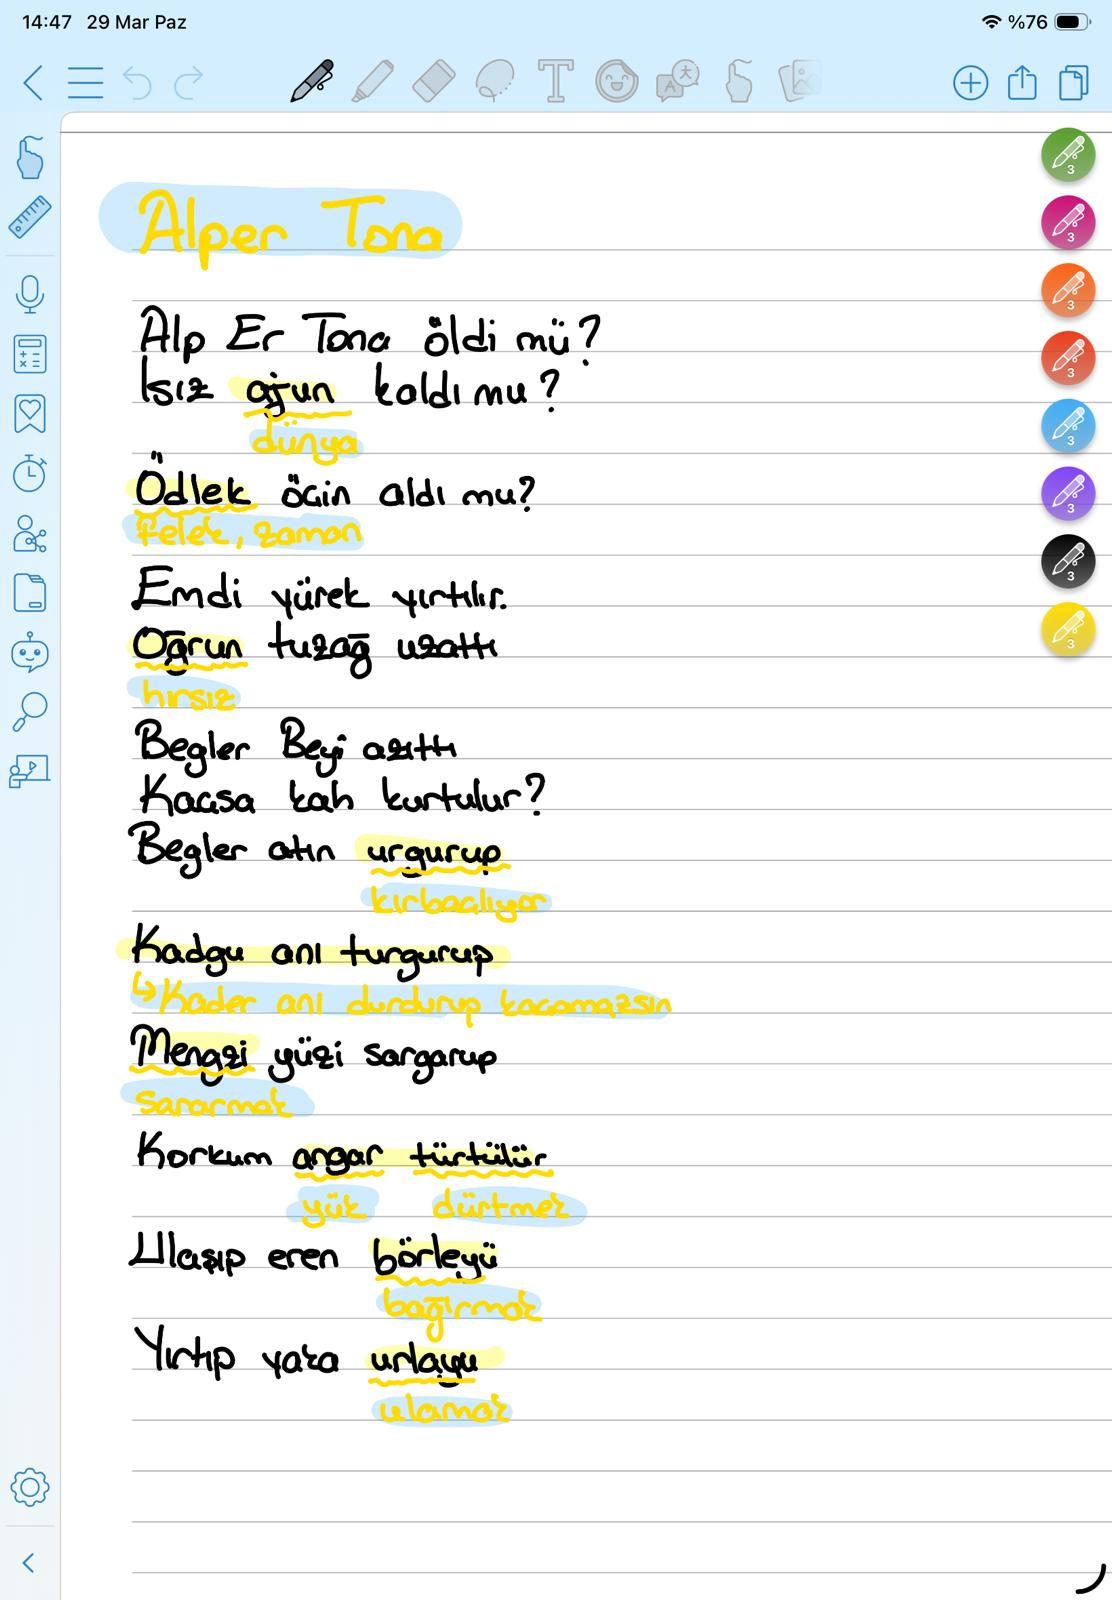 14:47 29 Mar Paz %76
Alper Tona
Alp Er Tona öldi mü?
Isız ajun kaldı mu?
dünya
Ödlek öcin aldı mu?
felek, zaman
Emdi yürek yırtılır.
Oğrun tuzağ uzattı
hırsız
Begler Beyi azıttı
Kacısa kah kurtulur?
Begler atın urgurup
kırbaclıyor
Kadgu anı turgurup
↳ Kader anı durdurup kacamazsın
Mengzi yüzi sargarup
sararmak
Korkum angar türtülür
yük dürtmek
Ulaşıp eren börleyü
bağırmak
Yırtıp yaka urlayu
ulamak
3
3
3
3
3
3
3
3